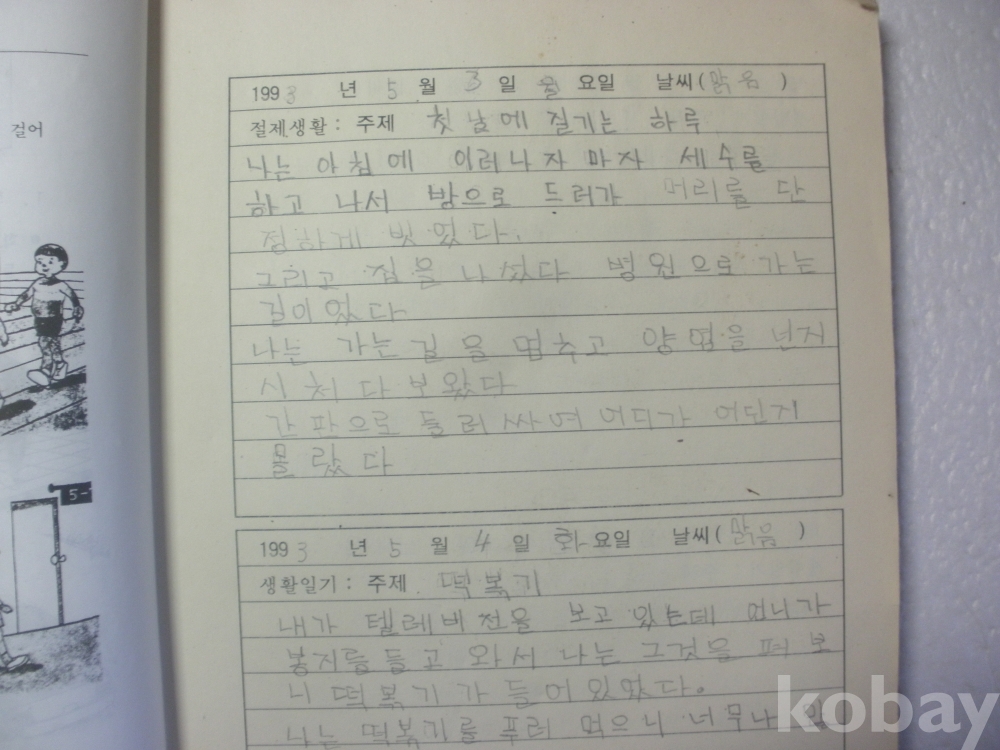 걸어
1993 년 5 월 3 일 월 요일 날씨(맑음)
절제생활: 주제 첫날에 질기는 하루
나는 아침에 이러나자 마자 세수를
하고 나서 방으로 드러가 머리를 단
정하게 빗었다.
그리고 집을 나섰다 병원으로 가는
길이었다
나는 가는 길을 멈추고 양엽을 넌지
시 처다 보왔다
간판으로 둘러싸여 어디가 어딘지
몰랐다
5-
1993 년 5 월 4 일 화요일 날씨(맑음)
생활일기: 주제 떡복기
내가 텔레비전을 보고 있는데 언니가
봉지를 들고 와서 나는 그것을 펴 보
니 떡복기가 들어있었다.
나는 떡복기를 푸러 먹으니 너무나
kobay